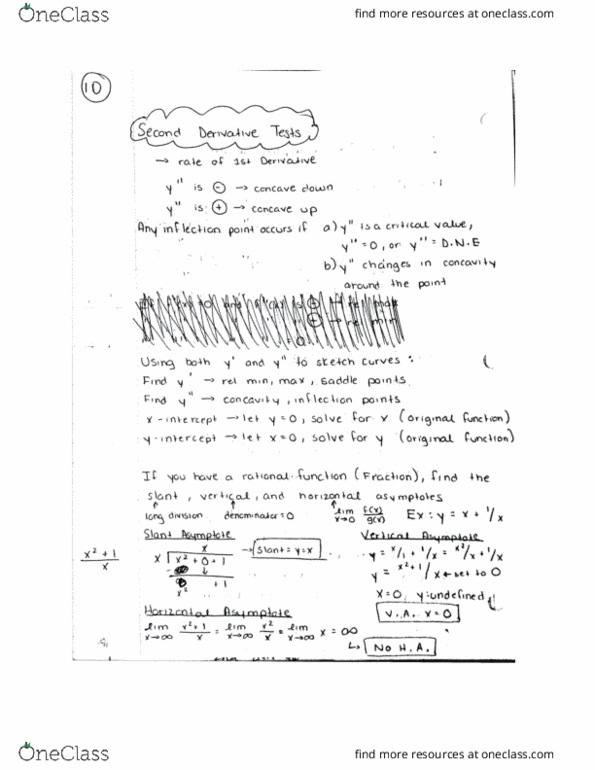 OneClass
find more resources at oneclass.com
10
Second Derivative Tests
→ rate of 1st Derivative
y" is ⊖ → concave down
y" is ⊕ → concave up
Any inflection point occurs if a) y" is a critical value,
y" = 0, or y" = D.N.E
b) y" changes in concavity
around the point
Using both y' and y" to sketch curves :
Find y' → rel min, max, saddle points
Find y" → concavity, inflection points
x-intercept → let y=0, solve for x (original function)
y-intercept → let x=0, solve for y (original function)
If you have a rational function (Fraction), find the
slant, vertical, and horizontal asymptotes
long division denominator=0 lim x→0 f(x)/g(x) Ex: y = x + 1/x
Slant Asymptote
x²+1/x
x
x | x² + 0 + 1
→ slant = y=x
- x²
+1
Vertical Asymptote
y = x/1 + 1/x = x²/x + 1/x
y = x²+1/x ← set to 0
x=0, y: undefined
V.A. x=0
Horizontal Asymptote
lim x→∞ x²+1/x = lim x→∞ x²/x = lim x→∞ x = ∞
↳ No H.A.
OneClass
find more resources at oneclass.com